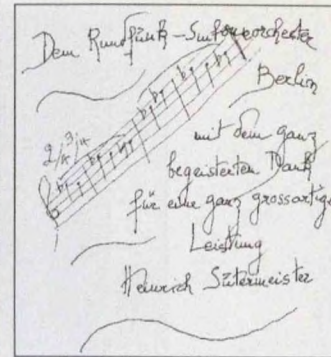 Dem Rundfunk-Sinfonieorchester
Berlin
2/4 3/4
mit dem ganz
begeisterten Dank
für eine ganz grossartige
Leistung
Heinrich Sutermeister